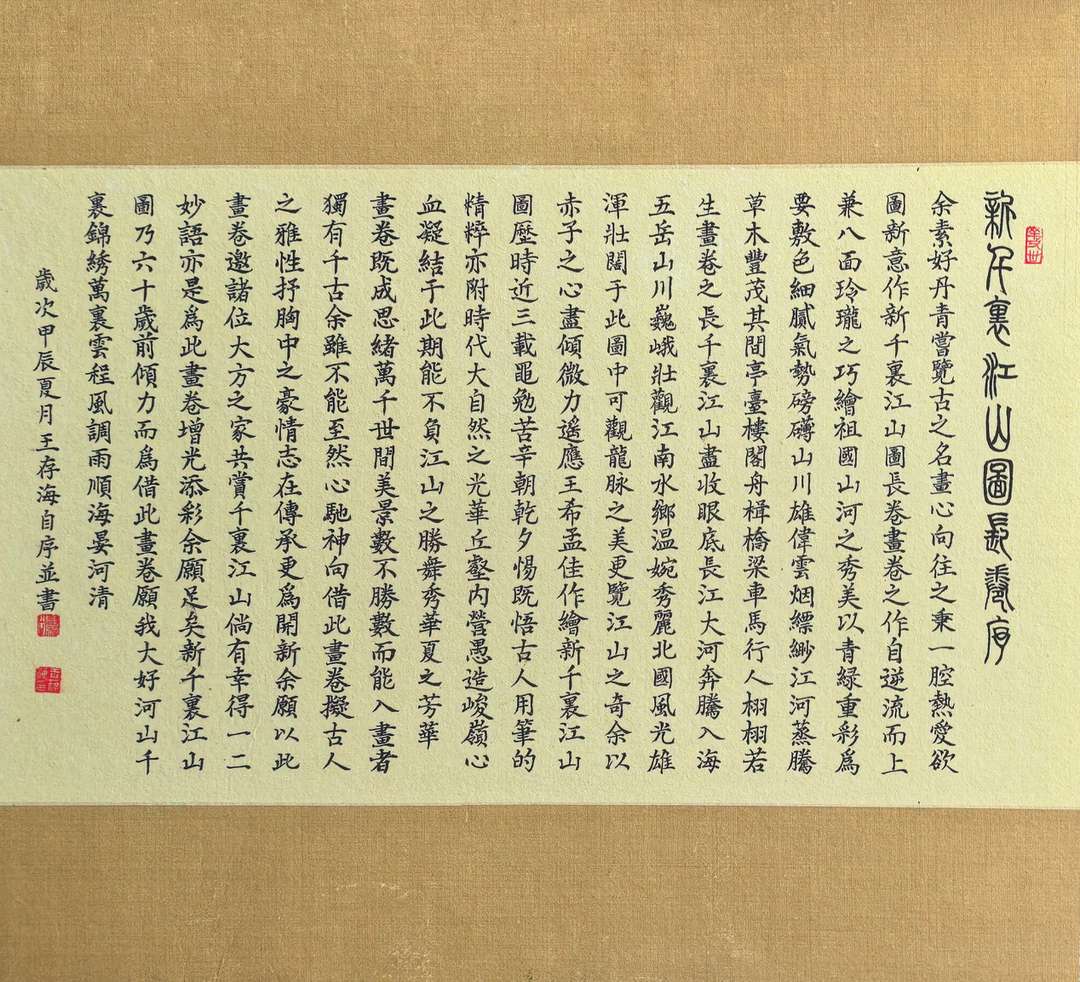 新千裏江山圖長卷序
余素好丹青嘗覽古之名畫心向往之乘一腔熱愛欲
圖新意作新千裏江山圖長卷畫卷之作自逆流而上
兼八面玲瓏之巧繪祖國山河之秀美以青緑重彩爲
要敷色細膩氣勢磅礴山川雄偉雲烟縹緲江河蒸騰
草木豐茂其間亭臺樓閣舟楫橋梁車馬行人栩栩若
生畫卷之長千裏江山盡收眼底長江大河奔騰入海
五岳山川巍峨壯觀江南水鄉温婉秀麗北國風光雄
渾壯闊于此圖中可觀龍脉之美更覽江山之奇余以
赤子之心盡傾微力遥應王希孟佳作繪新千裏江山
圖歷時近三載黽勉苦辛朝乾夕惕既悟古人用筆的
情粹亦附時代大自然之光華丘壑内營愚造峻嶺心
血凝結于此期能不負江山之勝舞秀華夏之芳華
畫卷既成思緒萬千世間美景數不勝數而能入畫者
獨有千古余雖不能至然心馳神向借此畫卷擬古人
之雅性抒胸中之豪情志在傳承更爲開新余願以此
畫卷邀諸位大方之家共賞千裏江山倘有幸得一二
妙語亦是爲此畫卷增光添彩余願足矣新千裏江山
圖乃六十歲前傾力而爲借此畫卷願我大好河山千
裏錦綉萬裏雲程風調雨順海晏河清
歲次甲辰夏月王存海自序並書